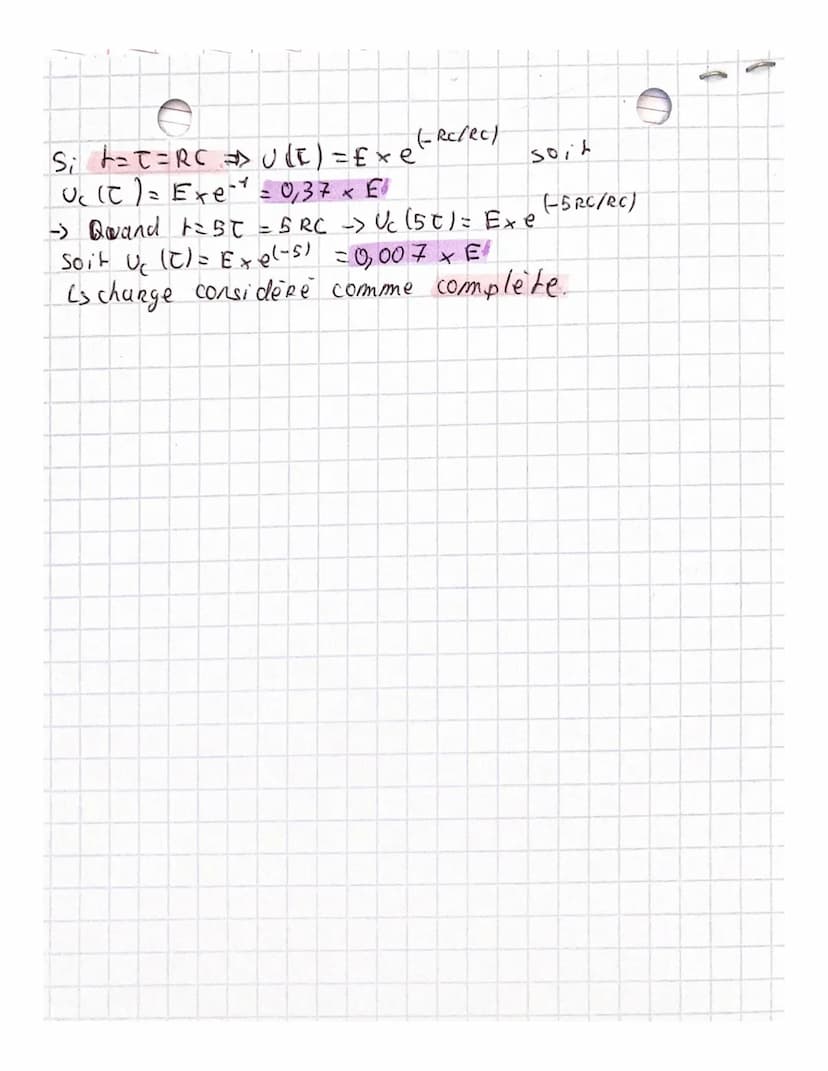 Si t=τ=RC => U(τ)=E×e^(-RC/RC) soit
Uc(τ)=E×e^-1 = 0,37 × E
-> Quand t=5τ = 5RC -> Uc(5τ)= E×e^(-5RC/RC)
soit Uc(τ)= E×e(-5) = 0,007 × E
↳ charge considéré comme complète.